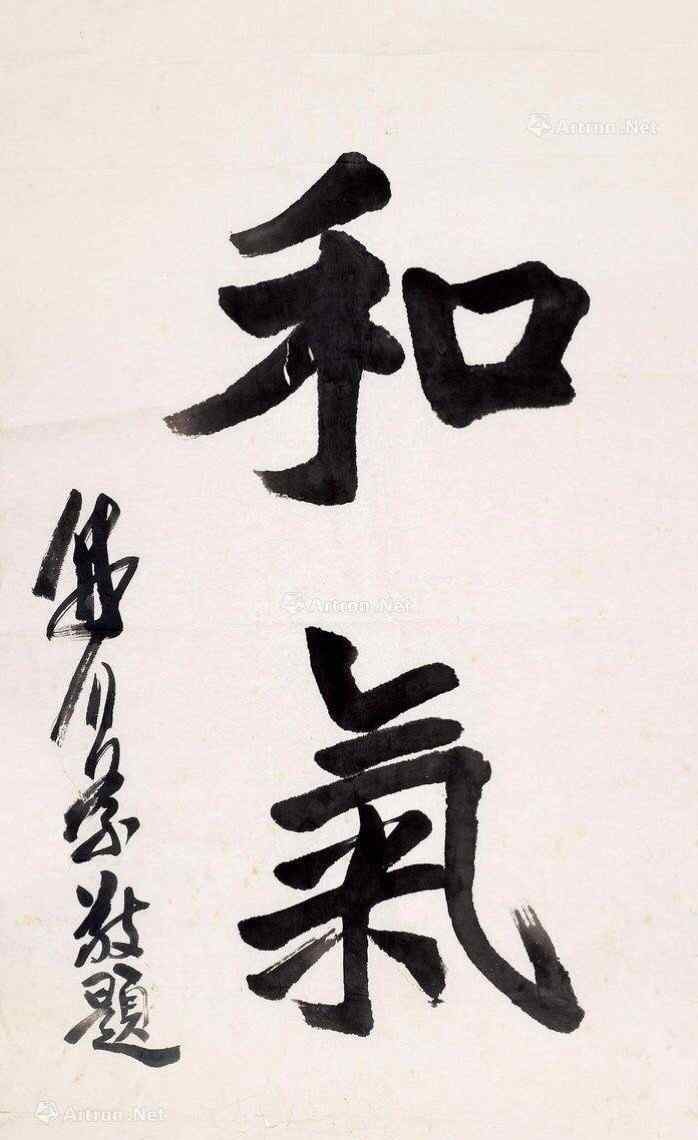 和氣
敬題
Artron.Net
Artron.Net
Artron.Net